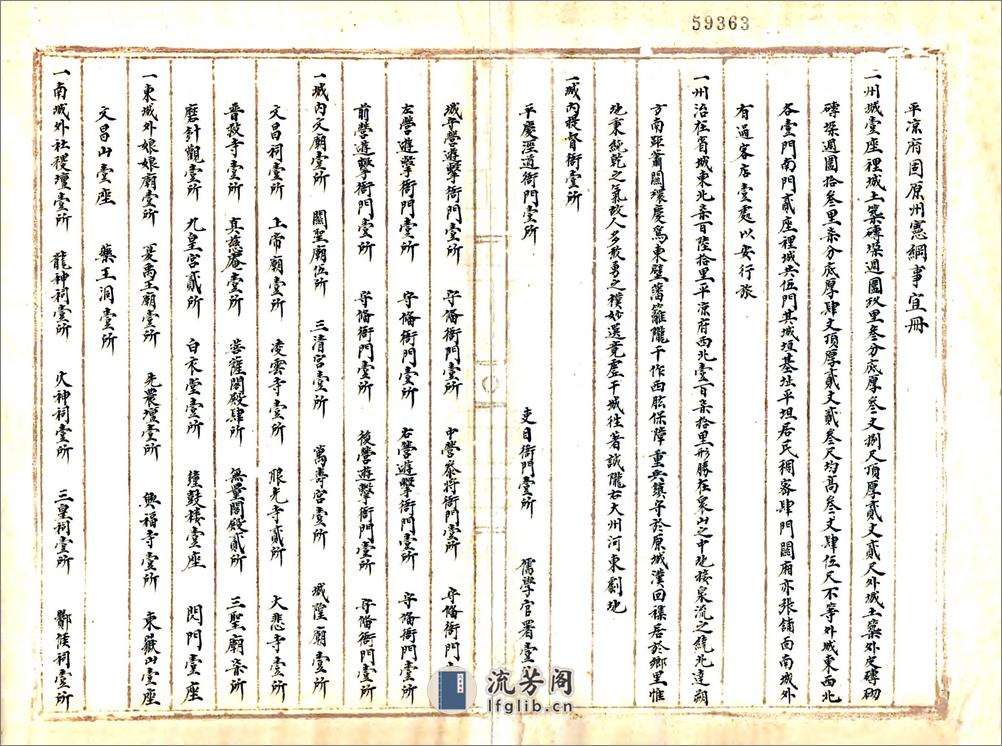 59363
平凉府固原州憲綱事宜冊
一州城壹座裡城土築磚垛週圍玖里叁分底厚叁丈捌尺頂厚貳丈貳尺外城土築外皮磚砌
磚垛週圍拾叁里柒分底厚肆丈頂厚貳丈貳叁尺均高叁丈肆伍尺不等外城東西北
各壹門南門貳座裡城共伍門其城垣基址平坦居民稠密肆門闊廂亦張舖面南城外
有過客店壹處以安行旅
一州治在省城東北柒百陸拾里平凉府西北壹百柒拾里形勝在泉山之中地接泉流之繞北達朔
方南距蕭關襟慶爲東壁藩籬隴干作西陲保障重兵鎮守於原城漢回襍居於鄉里惟
地秉純乾之氣故人多敢勇之樸妙選竟虛干城徃著誠隴右大州河東劃地
一城內提督衙壹所
平慶涇道衙門壹所 吏目衙門壹所 儒學官署壹所
城守營遊擊衙門壹所 守偹衙門壹所 中營叅將衙門壹所 守偹衙門
左營遊擊衙門壹所 守偹衙門壹所 右營遊擊衙門壹所 守偹衙門壹所
前營遊擊衙門壹所 守偹衙門壹所 後營遊擊衙門壹所 守偹衙門壹所
一城內文廟壹所 關聖廟伍所 三清宮壹所 萬壽宮壹所 城隍廟壹所
文昌祠壹所 上帝廟壹所 凌雲寺壹所 眼光寺貳所 大悲寺壹所
晋救寺壹所 真慈庵壹所 菩薩閣殿肆所 無量閣殿貳所 三聖廟柒所
磨針觀壹所 九皇宮貳所 白衣堂壹所 鐘鼓楼壹座 閃門壹座
一東城外娘娘廟壹所 夏禹王廟壹所 先農壇壹所 興福寺壹所 東嶽山壹座
文昌山壹座 藥王洞壹所
一南城外社稷壇壹所 龍神祠壹所 火神祠壹所 三皇祠壹所 鄭侯祠壹所
流芳阁
lfglib.cn